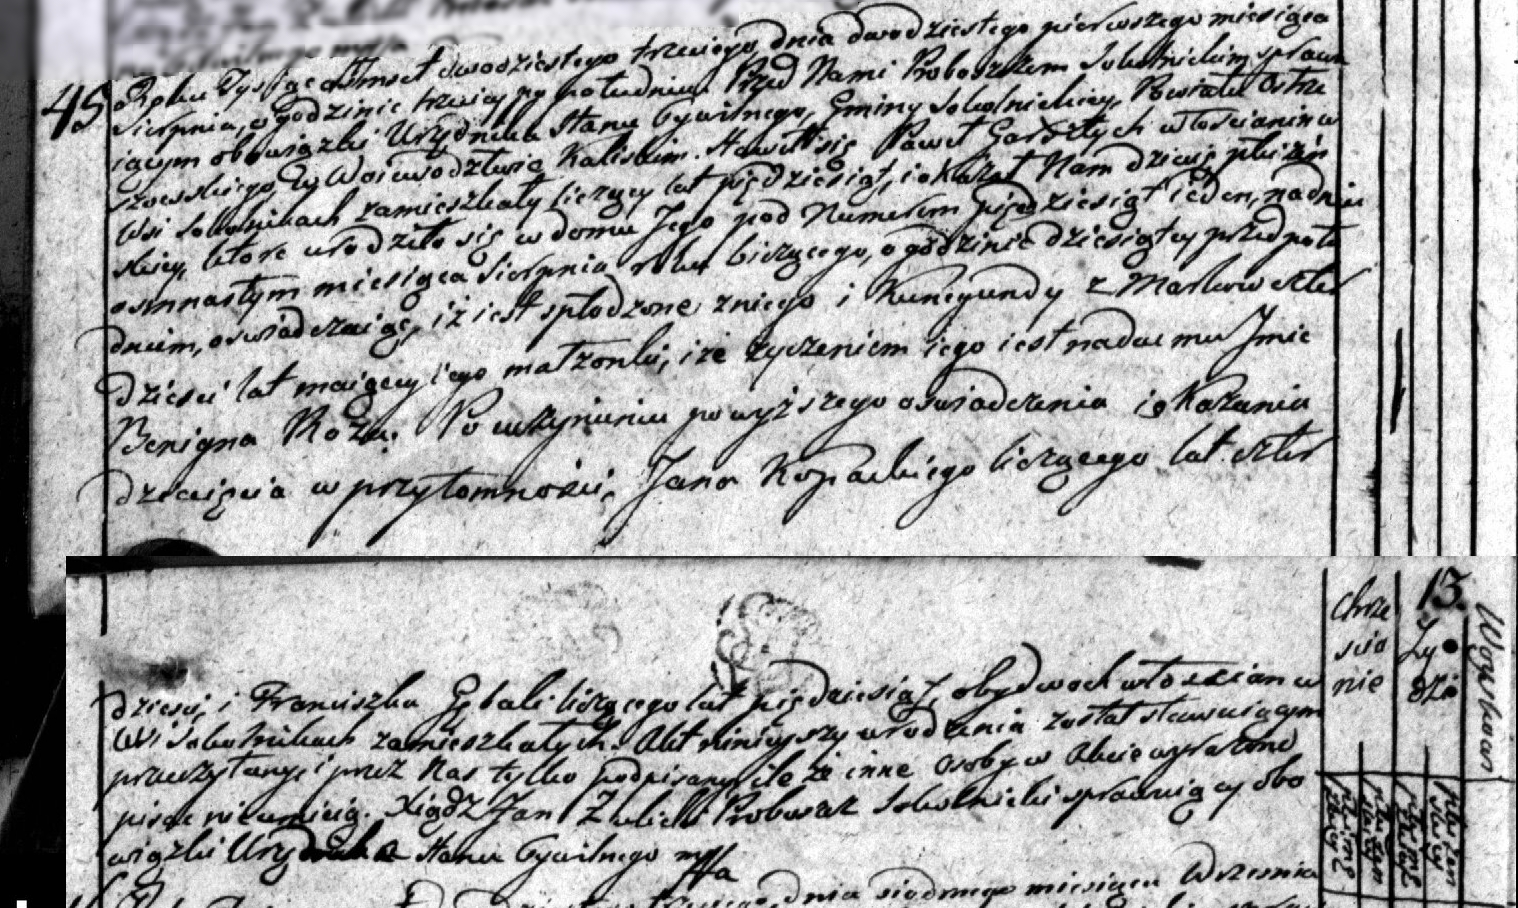 45
Roku Tysiąc Ośmset dwudziestego trzeciego, dnia dwudziestego pierwszego miesiąca
Sierpnia, o godzinie trzeciey po południu. Przed Nami Proboszczem Sokolnickim sprawu
iącym obowiązki Urzędnika Stanu Cywilnego, Gminy Sokolnickiey, Powiatu Ostrze
szowskiego, w Woiewodztwie Kaliskim. Stawił się Paweł włościanin w
Wsi Sokolnikach zamieszkały liczący lat pięćdziesiąt, i okazał Nam dziecię płci żeń
skiey, ktore urodziło się w domu Jego pod Numerem pięćdziesiąt ieden, na dniu
osmnastym miesiąca Sierpnia roku bieżącego, o godzinie dziesiątey przed połu
dniem, oswiadczaiąc, iż iest spłodzone z niego i Kunegundy z Marków czter
dzieści lat maiącey iego małżonki, i że życzeniem iego iest nadać mu Jmie
Benigna Roża. Po uczynieniu powyższego oswiadczenia i okazania
dziecięcia w przytomności, Jana Kopackiego liczącego lat czter
dzieści, i Franciszka Gębali liczącego lat pięćdziesiąt, obydwoch włoscian w
Wsi Sokolnikach zamieszkałych. Akt ninieyszy urodzenia został stawaiącym
przeczytany, i przez Nas tylko podpisany, ile że inne osoby w Akcie wyrażone
pisać nieumieią. Xiądz Jan Proboszcz Sokolnicki sprawuiący obo
wiązki Urzędnika Stanu Cywilnego mpa
dnia siodmego miesiąca Wrzesnia
13.
Chrze
scia
nie
Ży
dzi